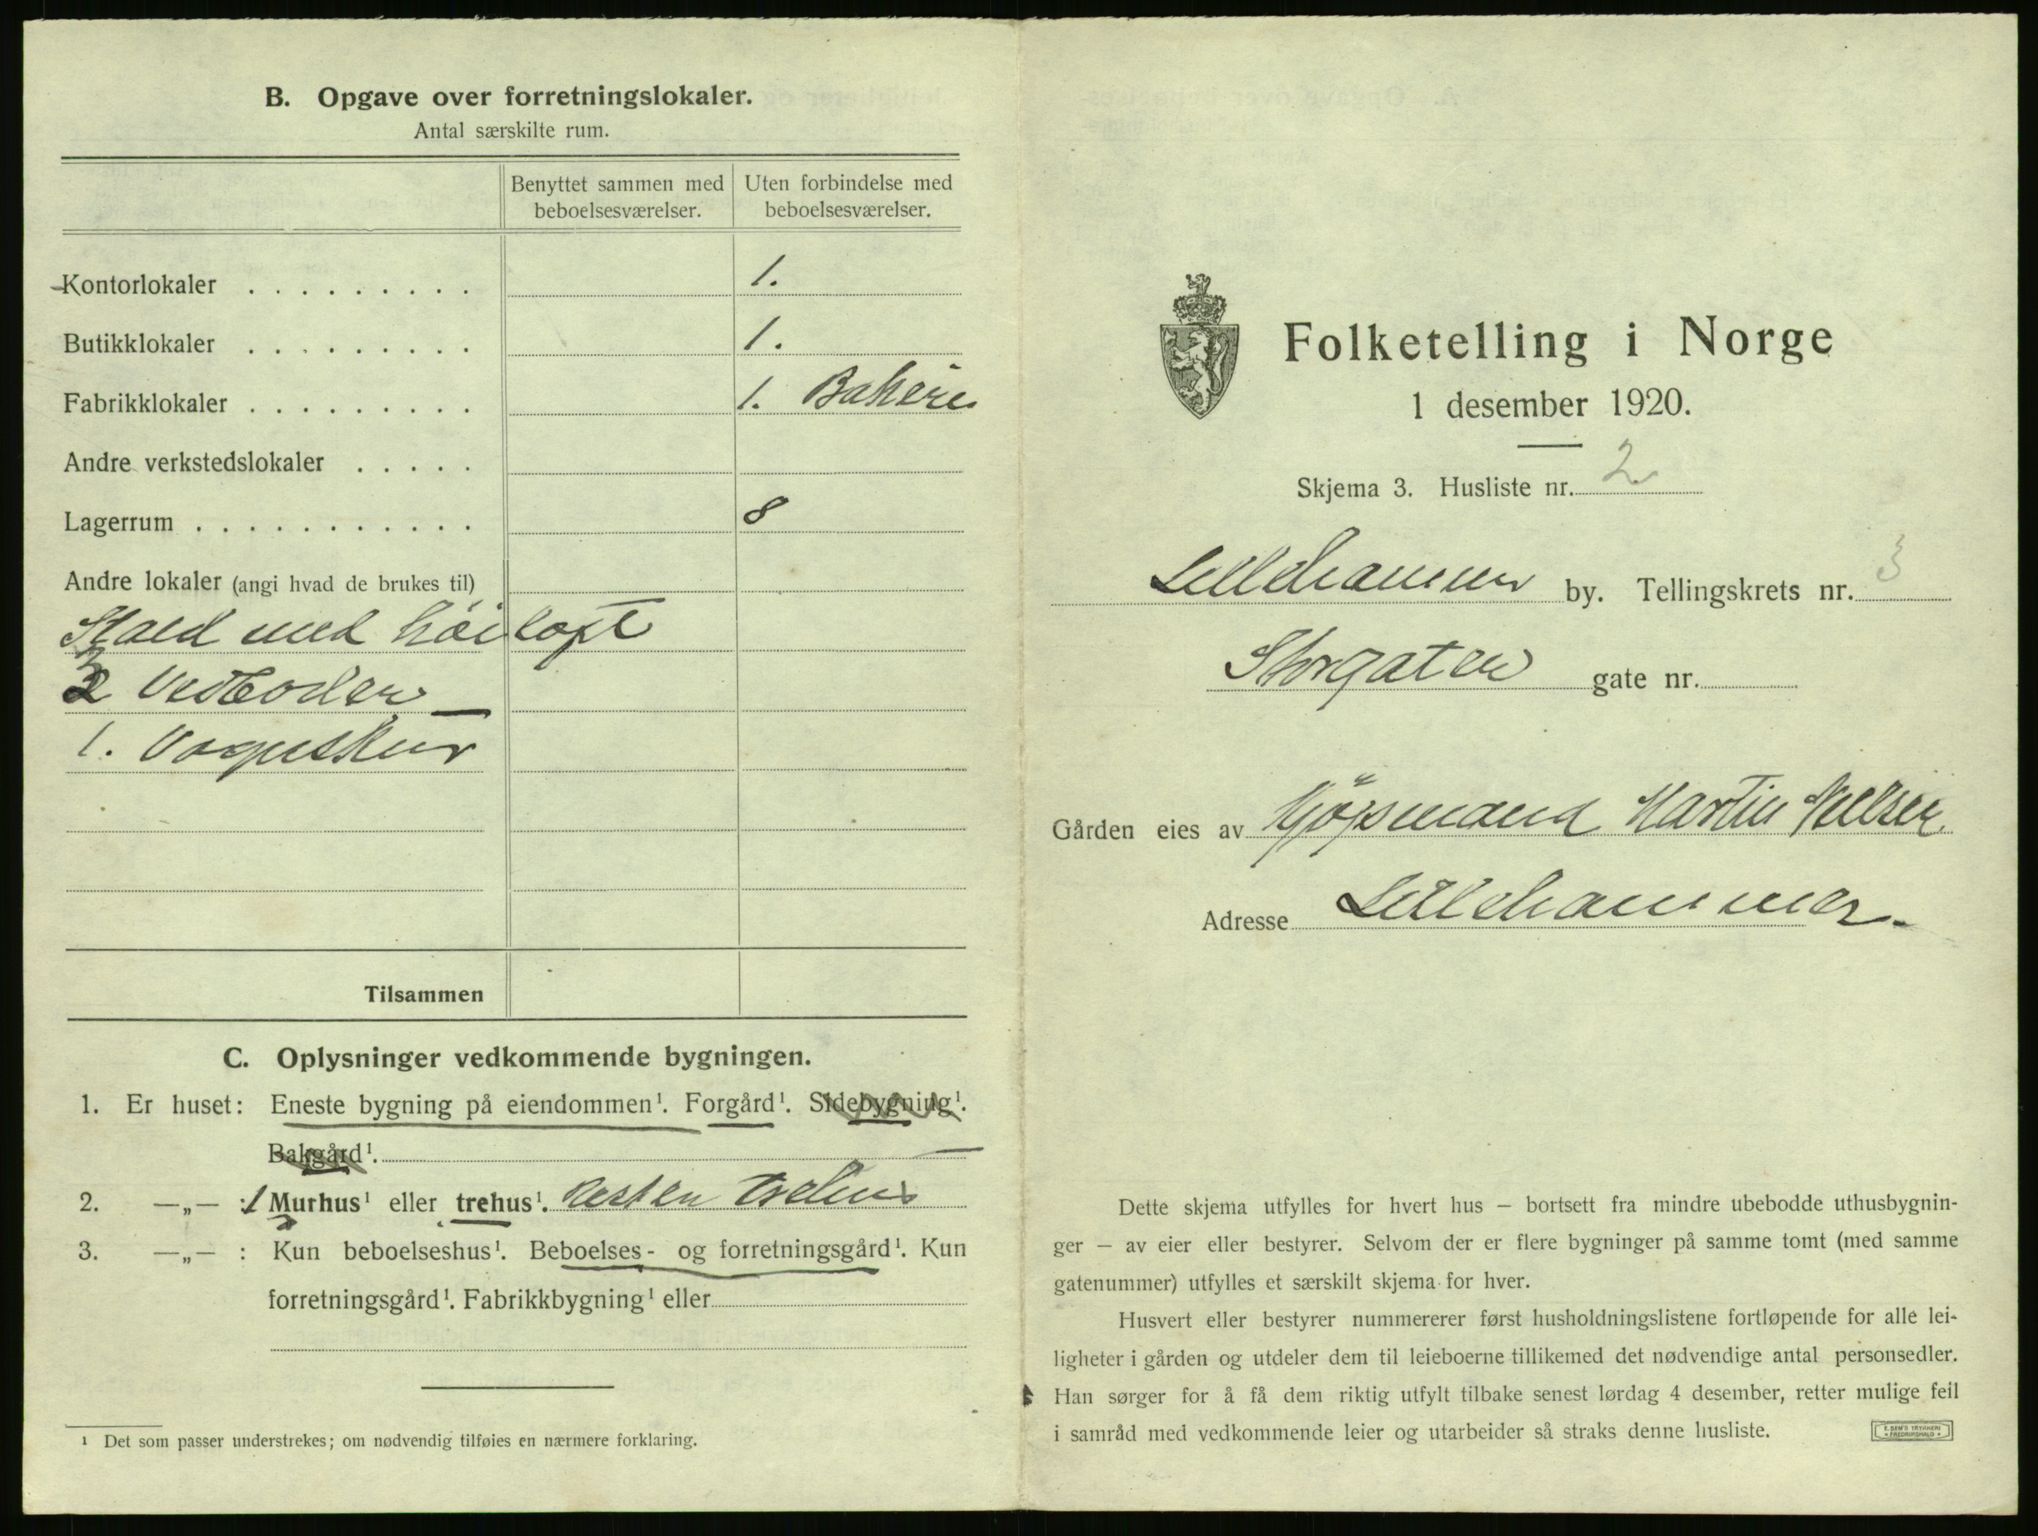 B. Opgave over forretningslokaler.
Antal særskilte rum.
Benyttet sammen med beboelsesværelser.
Uten forbindelse med beboelsesværelser.
Kontorlokaler . . . . . . . . . 1.
Butikklokaler . . . . . . . . . 1.
Fabrikklokaler . . . . . . . . . 1. Bakeri
Andre verkstedslokaler . . . . .
Lagerrum . . . . . . . . . . . . 8
Andre lokaler (angi hvad de brukes til)
Stald med höiloft
Vedboder
1. Vognskur
Tilsammen
C. Oplysninger vedkommende bygningen.
1. Er huset: Eneste bygning på eiendommen¹. Forgård¹. Sidebygning¹.
Bakgård¹.
2. —„— : 1 Murhus¹ eller trehus¹. Resten trehus
3. —„— : Kun beboelseshus¹. Beboelses- og forretningsgård¹. Kun
forretningsgård¹. Fabrikkbygning¹ eller
¹ Det som passer understrekes; om nødvendig tilføies en nærmere forklaring.
Folketelling i Norge
1 desember 1920.
Skjema 3. Husliste nr. 2
Lillehammer by. Tellingskrets nr. 3
Storgaten gate nr.
Gården eies av Kjöpsmand Martin Nilsen.
Adresse Lillehammer.
Dette skjema utfylles for hvert hus — bortsett fra mindre ubebodde uthusbygnin-
ger — av eier eller bestyrer. Selvom der er flere bygninger på samme tomt (med samme
gatenummer) utfylles et særskilt skjema for hver.
Husvert eller bestyrer nummererer først husholdningslistene fortløpende for alle lei-
ligheter i gården og utdeler dem til leieboerne tillikemed det nødvendige antal personsedler.
Han sørger for å få dem riktig utfylt tilbake senest lørdag 4 desember, retter mulige feil
i samråd med vedkommende leier og utarbeider så straks denne husliste.